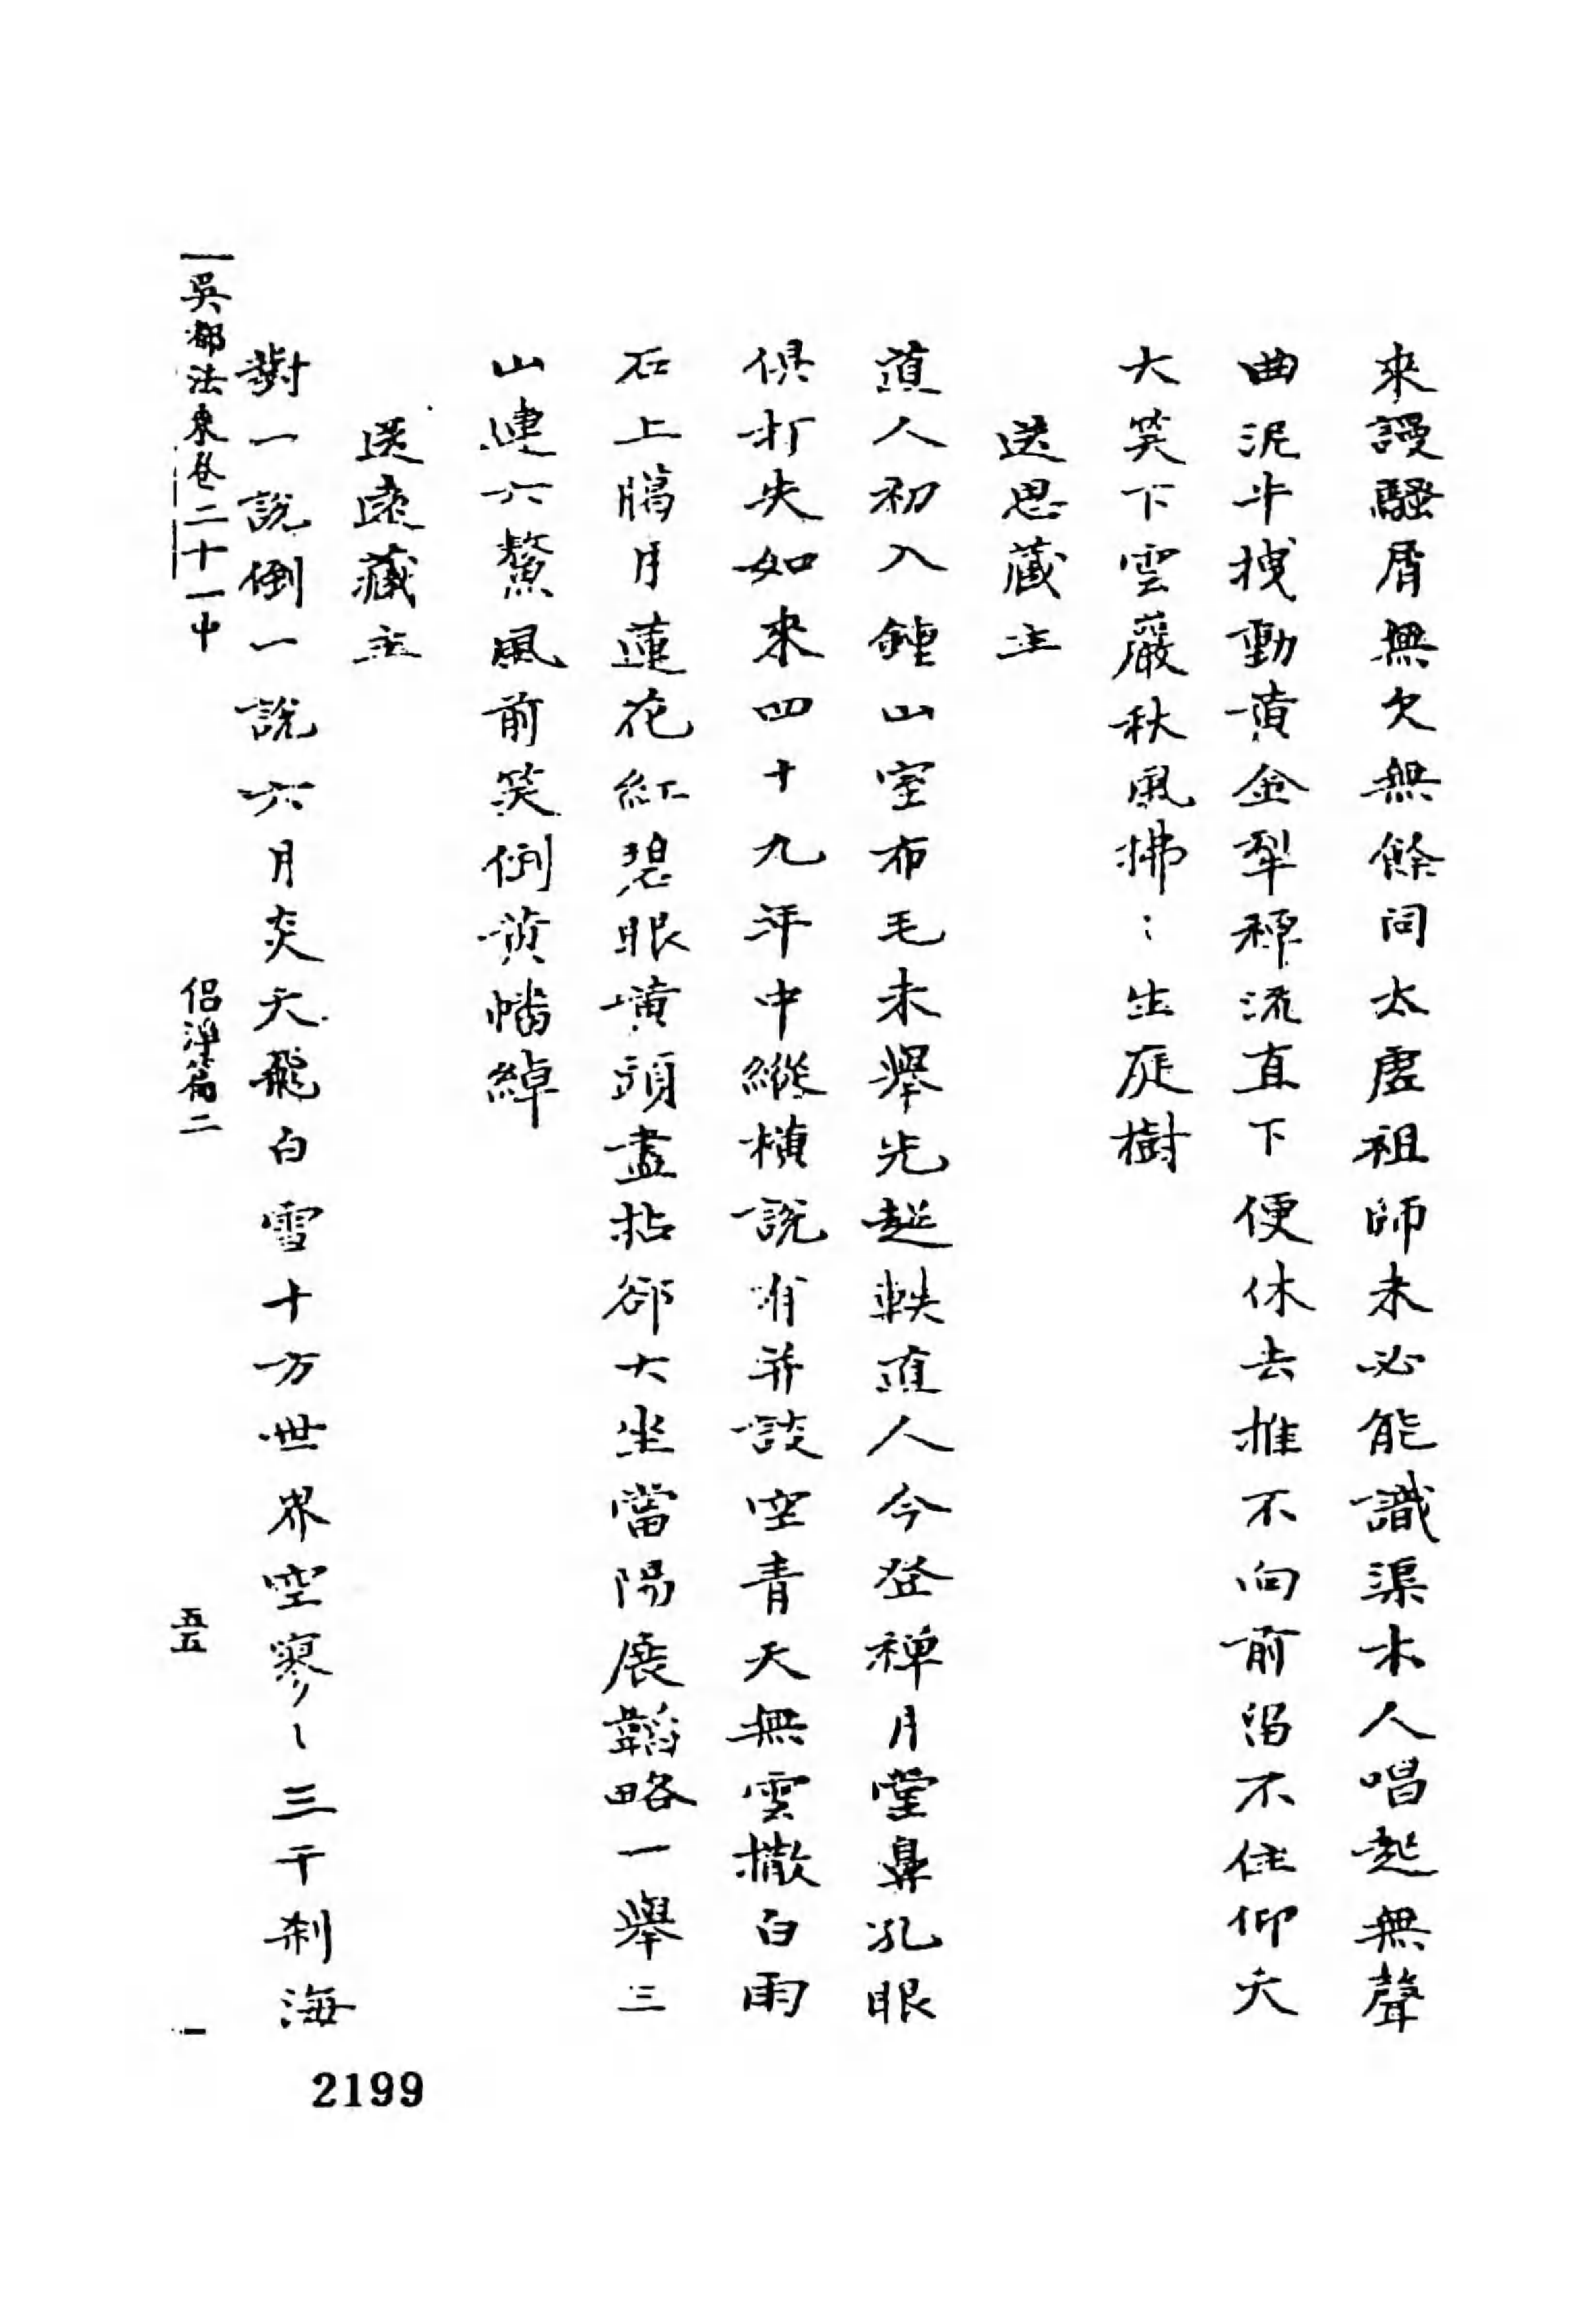 來謾騷屑無欠無餘同太虛祖師未必能識渠木人唱起無聲
曲泥牛拽動黃金犁禪流直下便休去推不向前沼不住仰天
大笑下雲巖秋風拂〻生庭樹
送思藏主
道人初入鍾山室布毛未舉先超軼道人今登禪月堂鼻孔眼
俱打失如來四十九年中縱橫說有并談空青天無雲撒白雨
石上臈月蓮花紅碧眼黃頭盡拈郤大坐當陽展韜略一舉三
山連六鰲風前笑倒黃幡綽
送遠藏主
對一說倒一說六月炎天飛白雪十方世界空寥〻三千剎海
吳都法乘卷二十一中
侶淨篇二
五五
2199